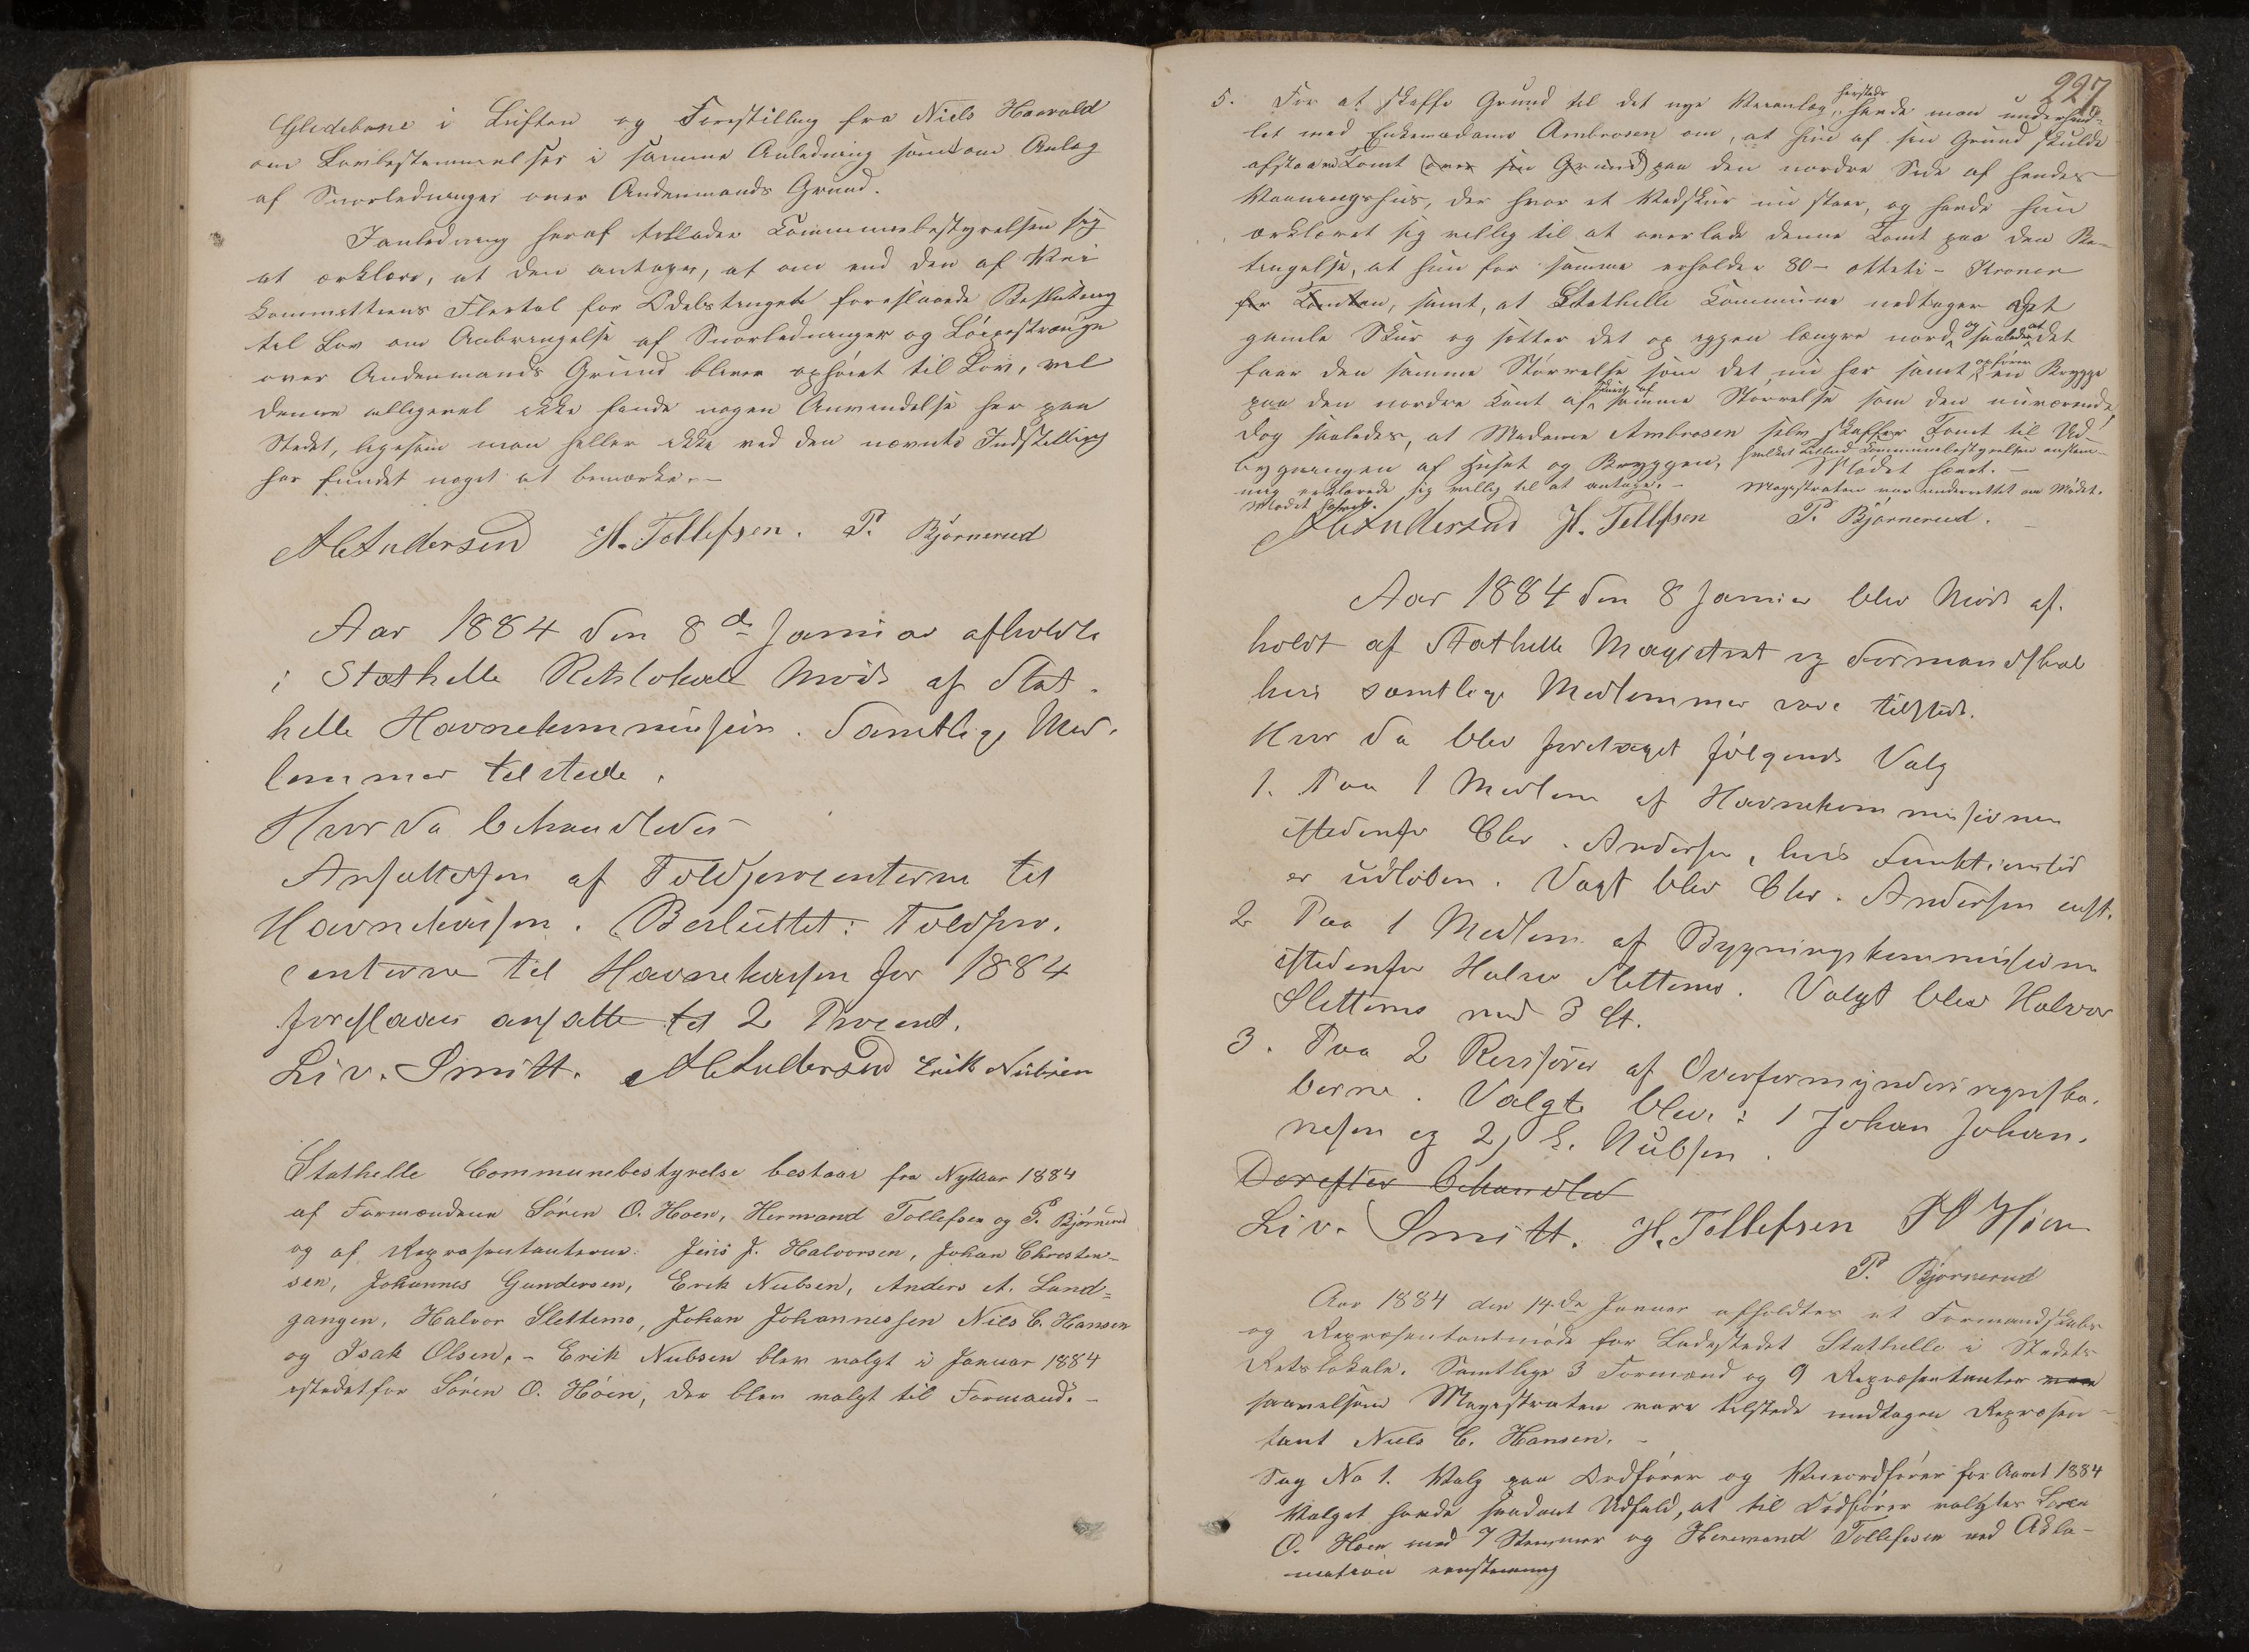 Glidebane i Luften og Forestilling fra Niels Haavold
om Lovbestemmelser i samme Anledning som om Anlæg
af Snorledninger over Andenmands Grund.
I anledning heraf tillader Communebestyrelsen sig
at erklære, at den antager, at om end den af Vei
kommitteens Flertal for Odelstinget foreslaaede Beslutning
til Lov om Anbringelse af Snorledninger og Løipestrænge
over Andenmands Grund bliver ophøiet til Lov, vil
denne alligevel ikke finde nogen Anvendelse her paa
Stedet, ligesom man heller ikke ved den nævnte Indstilling
har fundet noget at bemærke. –
A Andersen H. Tollefsen. P. Bjørnerud
Aar 1884 den 8de Januar afholdtes
i Stathelle Retslokale Møde af Stat-
helle Havnekommission. Samtlige Med-
lemmer tilstede.
Hvor da behandledes
Ansættelsen af Toldprocenterne til
Havnekassen. Besluttet: Toldpro-
centerne til Havnekassen for 1884
foreslaaes ansatte til 2 Procent.
Liv. Smitt. A Andersen Erik Nübsen
Stathelle Communebestyrelse bestaar fra Nytaar 1884
af Formændene Søren O. Hoen, Hermand Tollefsen og P. Bjørnerud
og af Repræsentanterne: Jens J. Halvorsen, Johan Christen-
sen, Johannes Gundersen, Erik Nubsen, Anders A. Land=
gangen, Halvor Slettemo, Johan Johannessen Niels C. Hansen
og Isak Olsen. – Erik Nubsen blev valgt i Januar 1884
istedetfor Søren O. Höen, der blev valgt til Formand. –
227
5. For at skaffe Grund til det nye Veianlæg, herstede havde man underhand-
let med Enkemadame Ambrosen om, at hun af sin Grund skulde
afstaa en Tomt (over sin Grund) paa den nordre Side af hendes
Vaaningshus, der hvor et Vedskur nu staar, og havde hun
erklæret sig villig til at overlade denne Tomt paa den Be-
tingelse, at hun for samme erholder 80 – otteti – Kroner
for Tomten, samt, at Stathelle Commune nedtager det
gamle Skur og sætter det op igjen længre nord og saaledes at det
faar den samme Størrelse som det nu har samt opfører en Brygge
paa den nordre Kant af samme Størrelse som den nuværende,
dog saaledes, at Madame Ambrosen selv skaffer Tomt til Ud-
bygningen af Huset og Bryggen, hvilket Tilbud Communebestyrelsen enstem-
mig erklærede sig villig til at antage. – Mødet hævet. –
Mødet hævet. Magistraten var underrettet om Mødet.
A Andersen H. Tollefsen P. Bjørnerud. –
Aar 1884 den 8 Januar blev Møde af-
holdt af Stathelle Magistrat og Formandskab
hvis samtlige Medlemmer vare tilstede.
Hvor da blev foretaget følgende Valg
1. Paa 1 Medlem af Havnekommissionen
istedenfor Chr. Andersen, hvis Funktionstid
er udløben. Valgt blev Chr. Andersen enst.
2 Paa 1 Medlem af Bygningskommissionen
istedenfor Halvor Slettemo. Valgt blev Halvor
Slettemo med 3 St.
3. Paa 2 Revisorer af Overformynderiregnska-
berne. Valgte blev: 1 Johan Johan-
nesen og 2, E. Nübsen.
Derefter behandled
Liv. Smitt. H. Tollefsen SO Høen
P. Bjørnerud
Aar 1884 den 14de Januar afholdtes et Formandskabs
og Repræsentantmøde for Ladestedet Stathelle i Stedets
Retslokale. Samtlige 3 Formænd og 9 Repræsentanter vare
saavelsom Magistraten vare tilstede undtagen Repræsen-
tant Niels C. Hansen. –
Sag No 1. Valg paa Ordfører og Viceordfører for Aaret 1884
Valget havde saadant Udfald, at til Ordfører valgtes Søren
O. Hoen med 7 Stemmer og Hermand Tollefsen ved Akla-
mation eenstemmig